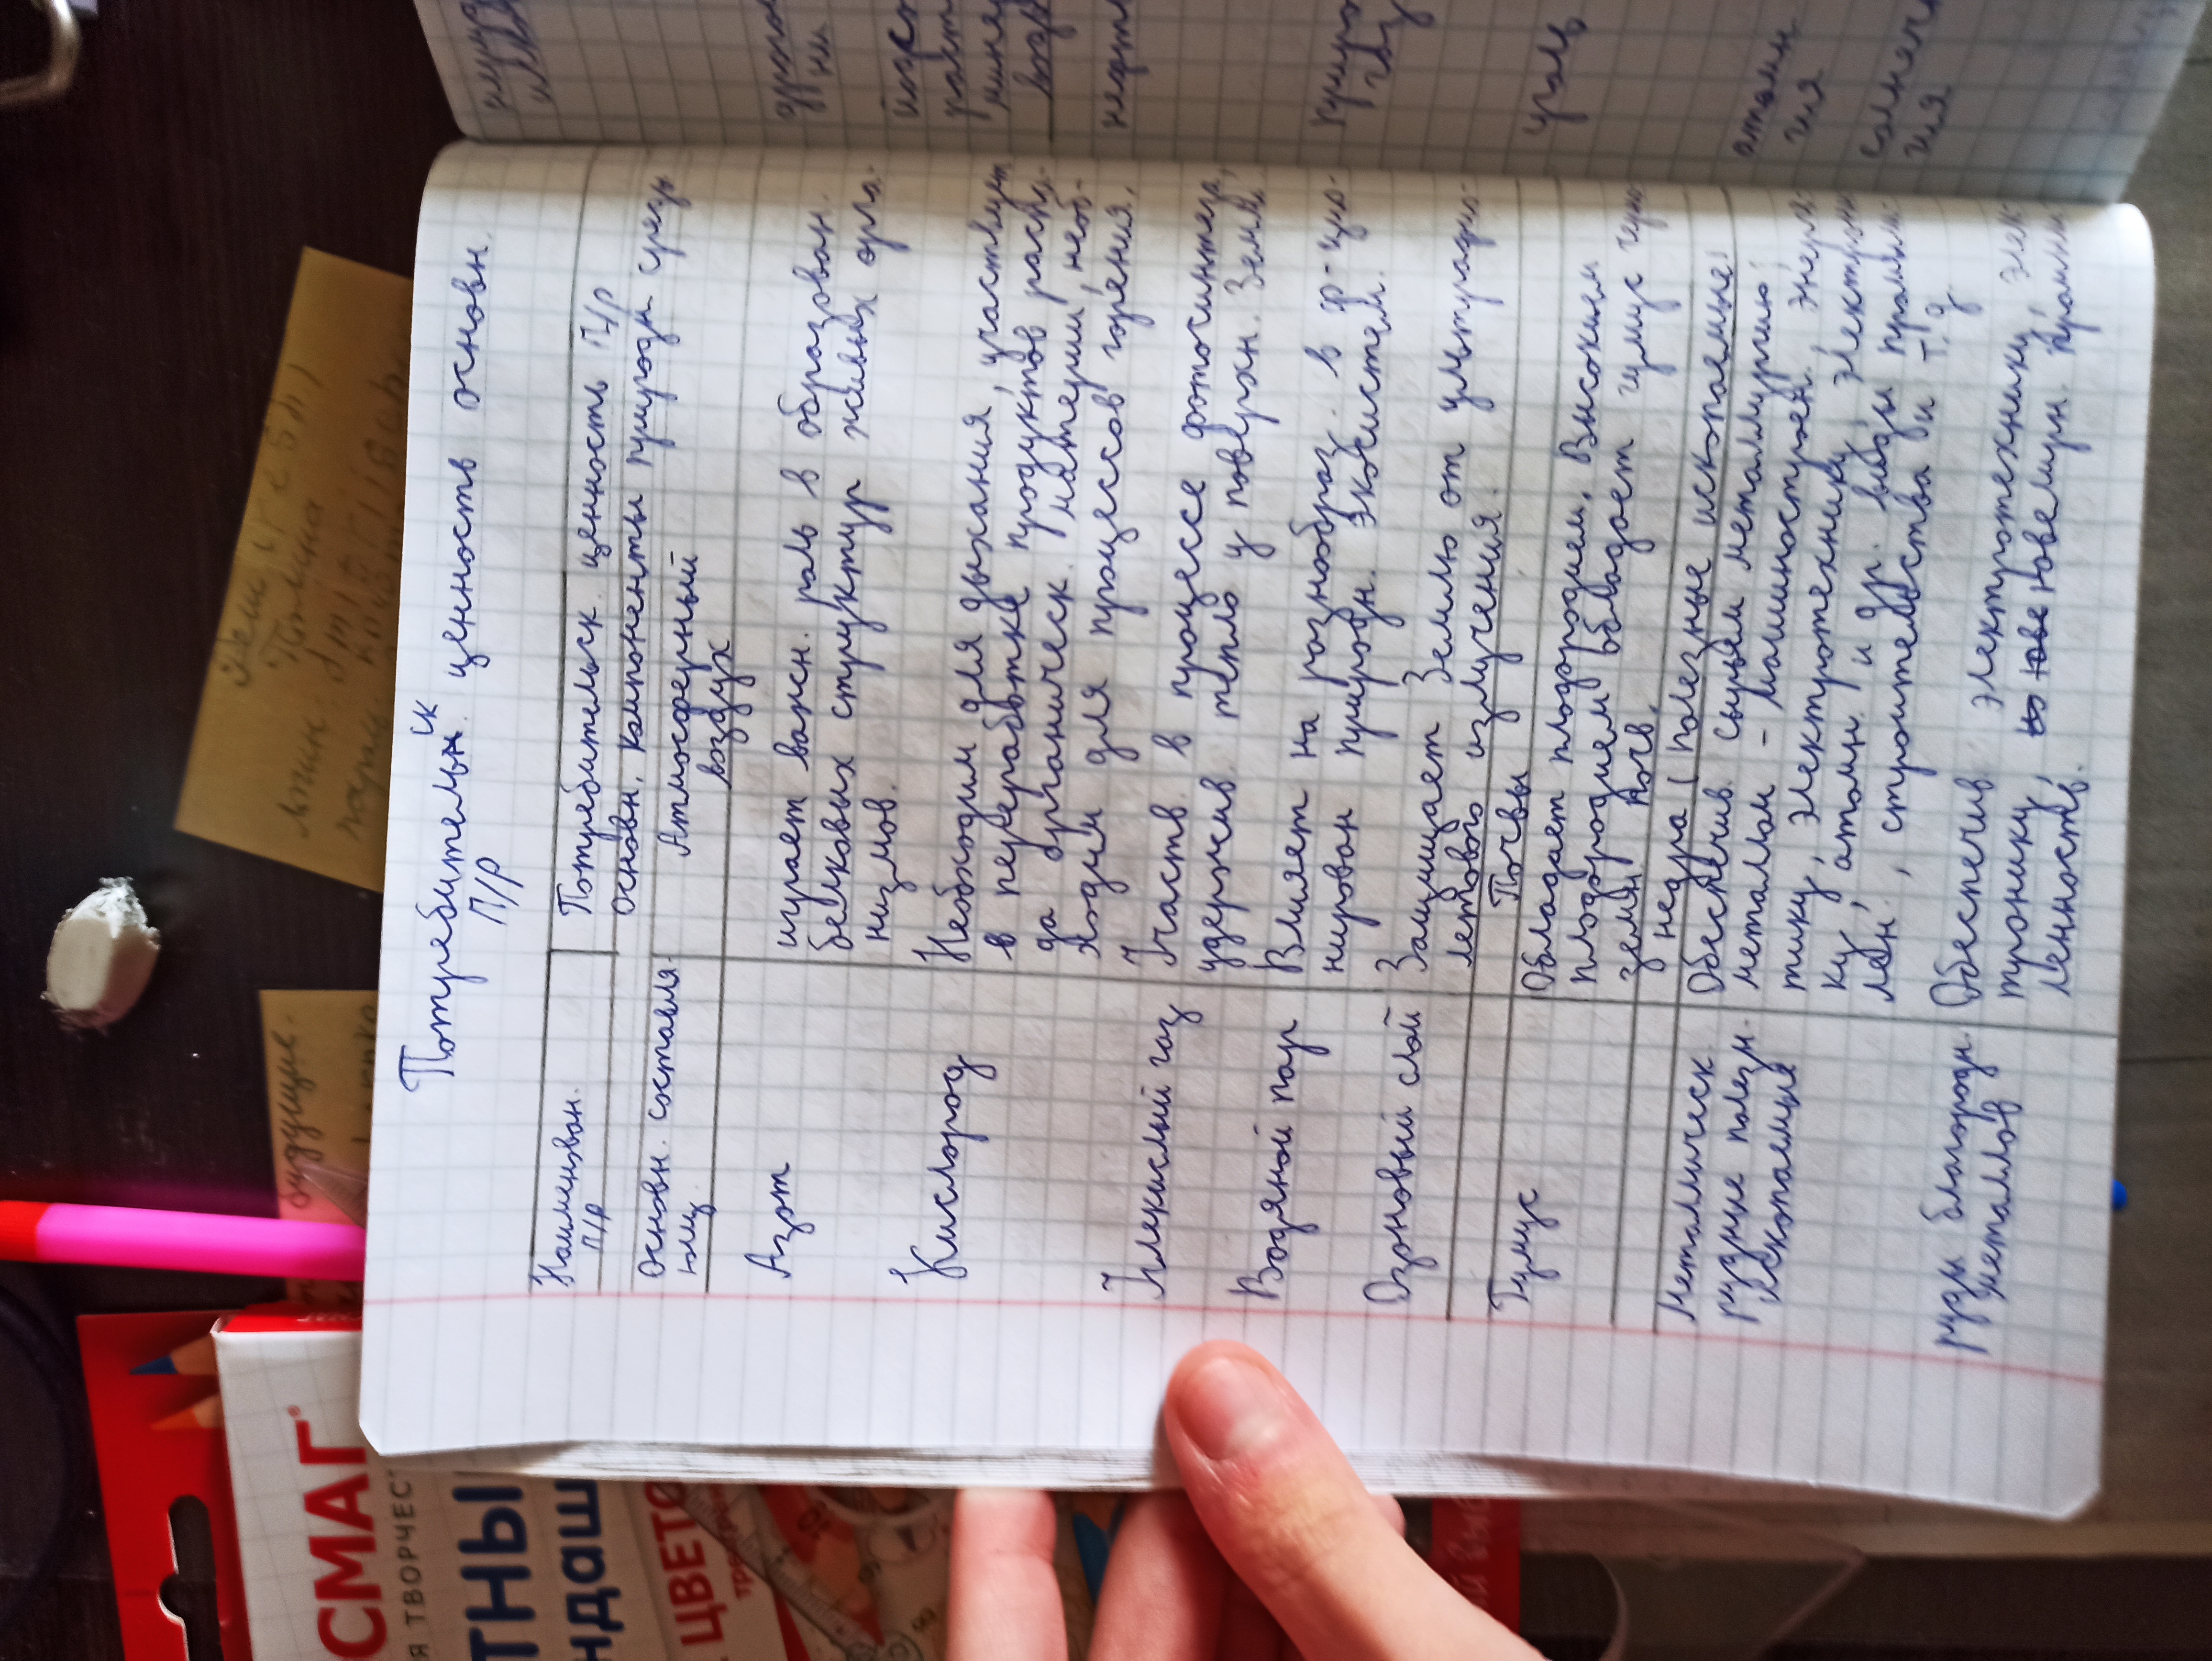 Потребительск ценность основн.
П/р
Наименован. П/р
Потребительск. ценность П/р
Основн. компоненты природн среды
Основн. составля-
ющ.
Атмосферный
воздух
Азот
играет важн. роль в образован.
белковых структур живых орга-
низмов.
Кислород
Необходим для дыхания, участвует
в переработке продуктов распа-
да органическ. материи, необ-
ходим для процессов горения.
Углекислый газ
Участв. в процессе фотосинтеза,
удержив. тепло у поверхн. Земли
Водяной пар
Влияет на разнообраз. в ф-цио-
нирован природн. экосистем.
Озоновый слой
Защищает Землю от ультрафио-
летового излучения.
Почвы
Гумус
Обладает плодородием. Высоким
плодородием обладает гумус чер
земн. почв.
недра (полезные ископаемые)
Металлическ
рудные полезн.
ископаемые
Обеспечив. сырьем металлургию
металлом - машиностроен. энерге-
тику, электротехнику, электрони
ку, атомн. и др. виды промыш-
лен., строительства и т.д
руды благородн.
металлов
Обеспечив. электротехнику, элек-
тронику, ювелирн. промыш
ленность.
уголь
атомн
гия
солнечн
гия
СМАГ
Я ТВОРЧЕС
ТНЫ
НДАШ
ЦВЕТО
будущие.